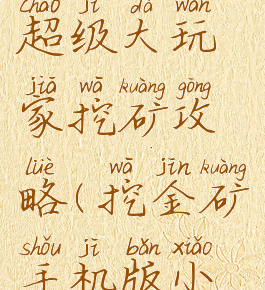 chāo jí dà wán
超级大玩
jiā wā kuàng gōng
家挖矿攻
lüè wā jīn kuàng
略(挖金矿
shǒu jī bǎn xiǎo
手机版小